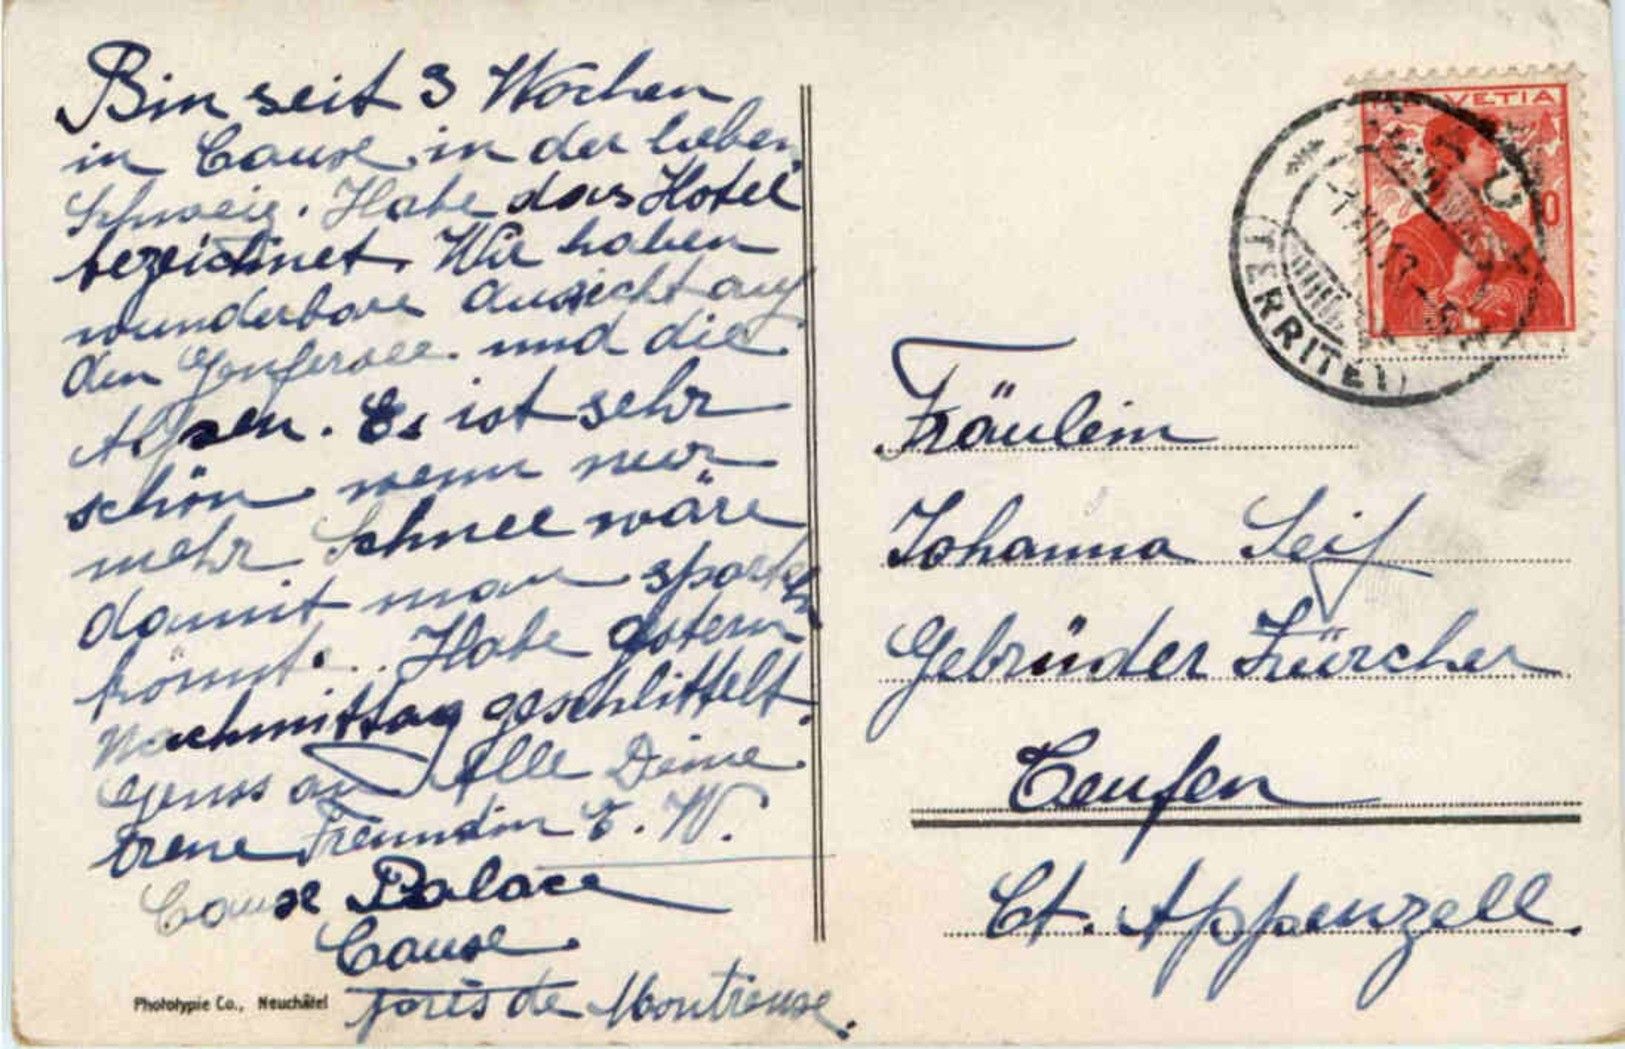 Bin seit 3 Wochen
in Caux in der lieben
Schweiz. Habe das Hotel
bezeichnet. Wir haben
wunderbare Aussicht auf
den Genfersee und die
Alpen. Es ist sehr
schön wenn nur
mehr Schnee wäre
damit man sporteln
könnte. Habe gestern
Nachmittag geschlittelt.
Gruss an Alle Deine
treue Freundin E. W.
Caux Palace
Caux
près de Montreux.
Phototypie Co., Neuchâtel
HELVETIA
CAUX
(TERRITET)
Fräulein
Johanna Seif
Gebrüder Zürcher
Teufen
Ct. Appenzell.